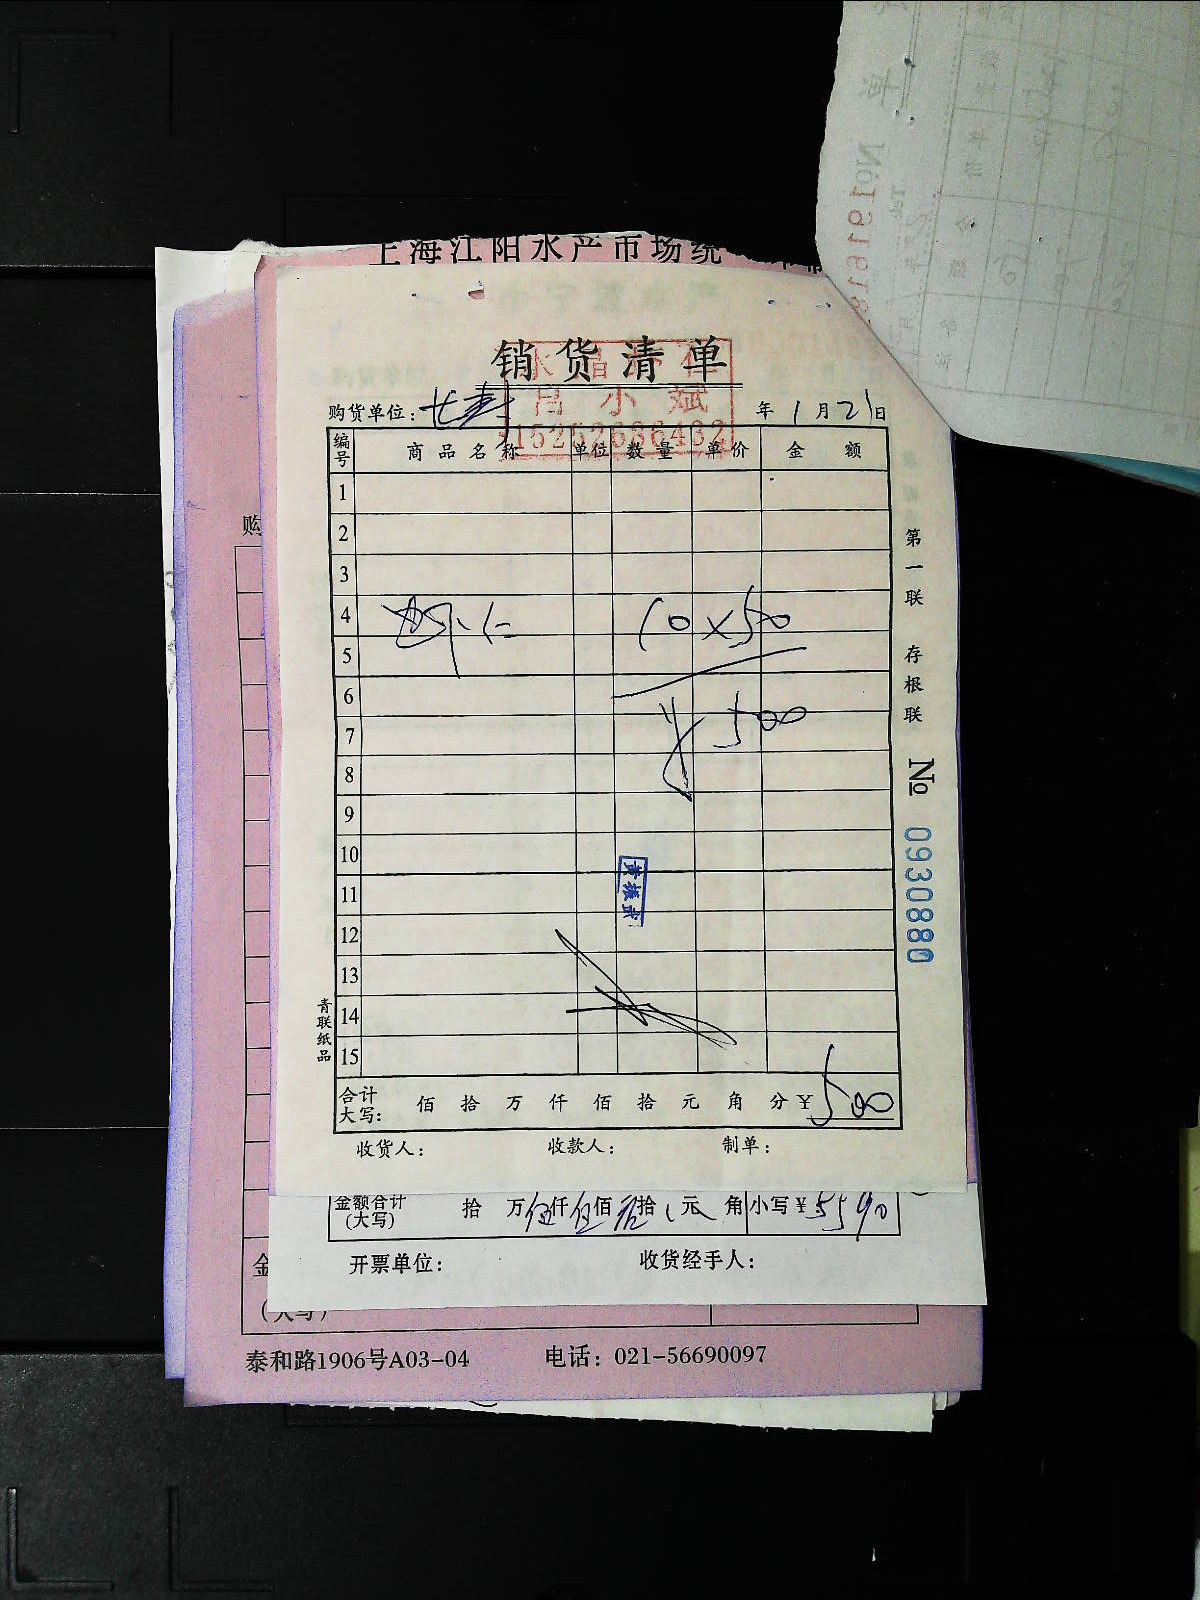 上海江阳水产市场统
销货清单
吕小斌
15252636432
购货单位: 年 1 月 21 日
编号 商品名称 单位 数量 单价 金额
1
2
3
4 虾仁 10×50
5
6
7 ¥500
8
9
10
11
12
13
14
15
合计大写: 佰 拾 万 仟 佰 拾 元 角 分 ¥500
收货人: 收款人: 制单:
第一联 存根联
No 0930880
青联纸品
购
金额合计(大写) 拾 万伍仟伍佰 拾 元 角 小写¥5590
开票单位: 收货经手人:
金
(大写)
泰和路1906号A03-04 电话: 021-56690097